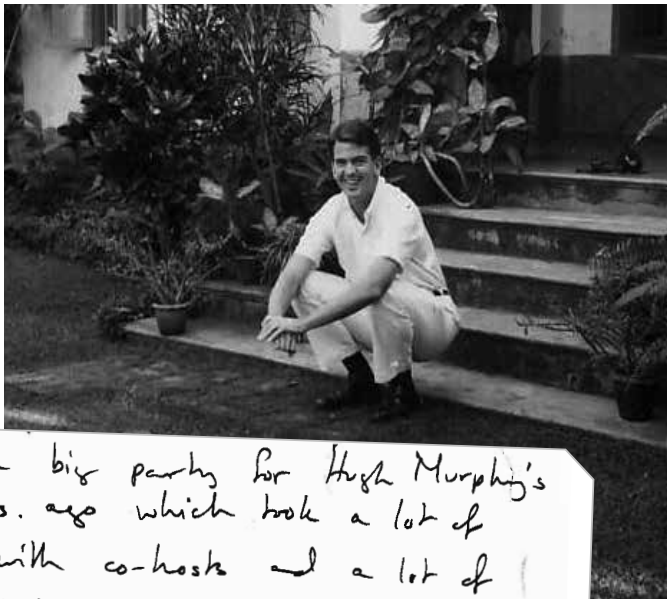 big party for Hugh Murphy's
s. ago which took a lot of
with co-hosts and a lot of